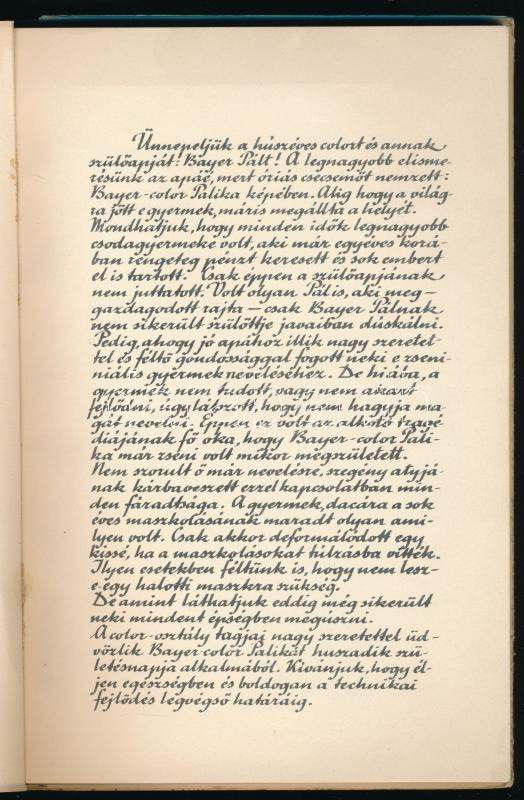 Ünnepeljük a húszéves colort és annak
szülőapját: Bayer Pált! A legnagyobb elisme-
résünk az apáé, mert óriás csecsemőt nemzett:
Bayer-color Palika képében. Alig hogy a világ-
ra jött e gyermek, máris megállta a helyét.
Mondhatjuk, hogy minden idők legnagyobb
csodagyermeke volt, aki már egyéves korá-
ban rengeteg pénzt keresett és sok embert
el is tartott. Csak éppen a szülőapjának
nem juttatott. Volt olyan Pál is, aki meg-
gazdagodott rajta – csak Bayer Pálnak
nem sikerült szülöttje javaiban dúskálni.
Pedig, ahogy jó apához illik nagy szeretet-
tel és féltő gondossággal fogott neki e zseni-
niális gyermek neveléséhez. De hiába, a
gyermek nem tudott, vagy nem akart
fejlődni, úgy látszott, hogy nem hagyja ma-
gát nevelni. Éppen ez volt az alkotó tragé-
diájának fő oka, hogy Bayer-color Pali-
ka már zseni volt mikor megszületett.
Nem szorult ő már nevelésre, szegény atyjá-
nak kárbaveszett ezzel kapcsolatban min-
den fáradtsága. A gyermek, dacára a sok
éves maszkolásának maradt olyan ami-
lyen volt. Csak akkor deformálódott egy
kissé, ha a maszkolásokat túlzásba vitték.
Ilyen esetekben féltünk is, hogy nem lesz-
e egy halotti maszkra szükség.
De amint láthatjuk eddig még sikerült
neki mindent épségben megúszni.
A color-osztály tagjai nagy szeretettel üd-
vözlik Bayer color Palikát huszadik szü-
letésnapja alkalmából. Kívánjuk, hogy él-
jen egészségben és boldogan a technikai
fejlődés legvégső határáig.